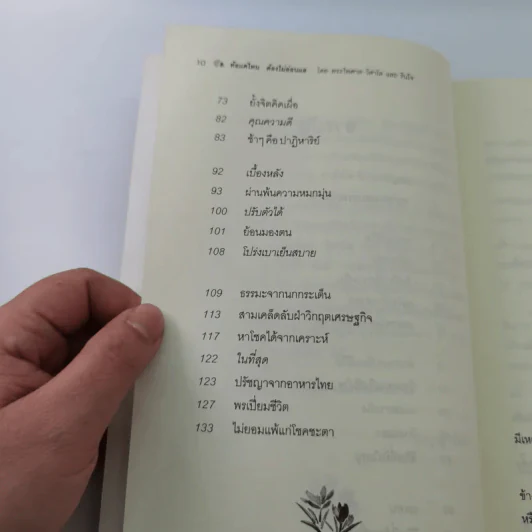 10 ปีล ท้อแค่ไหน ต้องไม่อ่อนแอ โดย
73 ยั้งจิตคิดเผื่อ
82 คุณความดี
83 ช้าๆ คือ ปาฏิหาริย์
92 เบื้องหลัง
93 ผ่านพ้นความหมกมุ่น
100 ปรับตัวได้
101 ย้อนมองตน
108 โปร่งเบาเย็นสบาย
109 ธรรมะจากนกกระเต็น
113 สามเคล็ดลับฝ่าวิกฤตเศรษฐกิจ
117 หาโชคได้จากเคราะห์
122 ในที่สุด
123 ปรัชญาจากอาหารไทย
127 พรเปี่ยมชีวิต
133 ไม่ยอมแพ้แก่โชคชะตา
ข้า